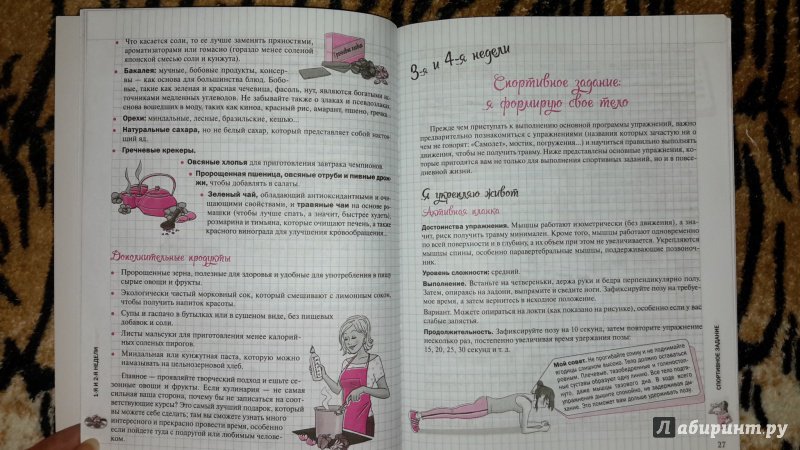 Что касается соли, то ее лучше заменять пряностями,
ароматизаторами или гомасио (гораздо менее соленой
японской смесью соли и кунжута).
Бакалея: мучные, бобовые продукты, консер-
вы — как основа для большинства блюд. Бобо-
вые, такие как зеленая и красная чечевица, фасоль, нут, являются богатыми ис-
точниками медленных углеводов. Не забывайте также о злаках и псевдозлаках,
снова вошедших в моду, таких как киноа, красный рис, амарант, пшено, гречка...
Орехи: миндальные, лесные, бразильские, кешью...
Натуральные сахара, но не белый сахар, который представляет собой настоя-
щий яд.
Гречневые крекеры.
Овсяные хлопья для приготовления завтрака чемпионов.
Пророщенная пшеница, овсяные отруби и пивные дрож-
жи, чтобы добавлять в салаты.
Зеленый чай, обладающий антиоксидантными и очи-
щающими свойствами, и травяные чаи на основе ро-
машки (чтобы лучше спать, а значит, быстрее худеть),
розмарина и тимьяна, которые очищают печень, а также
красного винограда для улучшения кровообращения...
Дополнительные продукты
Пророщенные зерна, полезные для здоровья и удобные для употребления в пищу
сырые овощи и фрукты.
Экологически чистый морковный сок, который смешивают с лимонным соком,
чтобы получить напиток красоты.
Супы и гаспачо в бутылках или в сушеном виде, без пищевых
добавок и соли.
Листы мальсуки для приготовления менее калорий-
ных соленых пирогов.
Миндальная или кунжутная паста, которую можно
намазывать на цельнозерновой хлеб.
Главное — проявляйте творческий подход и ешьте се-
зонные овощи и фрукты. Если кулинария — не самая
сильная ваша сторона, почему бы не записаться на соот-
ветствующие курсы? Это самый лучший подарок, который
вы можете себе сделать, там вы сможете узнать много
интересного и прекрасно провести время, особенно
если пойдете туда с подругой или любимым челове-
ком.
1-Я И 2-Я НЕДЕЛИ
3-я и 4-я недели
Спортивное задание:
я формирую свое тело
Прежде чем приступать к выполнению основной программы упражнений, важно
предварительно познакомиться с упражнениями (названия которых зачастую ни о
чем не говорят: «Самолет», мостик, погружения...) и научиться правильно выполнять
движения, чтобы не получить травму. Ниже представлены основные упражнения, ко-
торые пригодятся вам не только для выполнения спортивных заданий, но и в повсе-
дневной жизни.
Я укрепляю живот
Активная планка
Достоинства упражнения. Мышцы работают изометрически (без движения), а зна-
чит, риск получить травму минимален. Кроме того, мышцы работают одновременно
по всей поверхности и в глубину, а их объем при этом не увеличивается. Укрепляются
мышцы спины, особенно паравертебральные мышцы, поддерживающие позвоноч-
ник.
Уровень сложности: средний.
Выполнение. Встаньте на четвереньки, держа руки и бедра перпендикулярно полу.
Затем, опираясь на ладони, выпрямите и сведите ноги. Зафиксируйте позу на требуе-
мое время, а затем вернитесь в исходное положение.
Вариант. Можете опираться на локти (как показано на рисунке), особенно если у вас
слабые запястья.
Продолжительность. Зафиксируйте позу на 10 секунд, затем повторите упражнение
несколько раз, постепенно увеличивая время удержания позы:
15, 20, 25, 30 секунд и т. д.
Мой совет. Не прогибайте спину и не поднимайте
ягодицы слишком высоко. Тело должно оставаться
ровным. Плечевые, тазобедренные и голеностоп-
ные суставы образуют одну линию. Все тело подтя-
нуто, даже мышцы тазового дна. В ходе всего
упражнения дышите спокойно, не задерживая ды-
хание. Это поможет вам дольше удерживать позу.
СПОРТИВНОЕ ЗАДАНИЕ
27
Лабиринт.ру